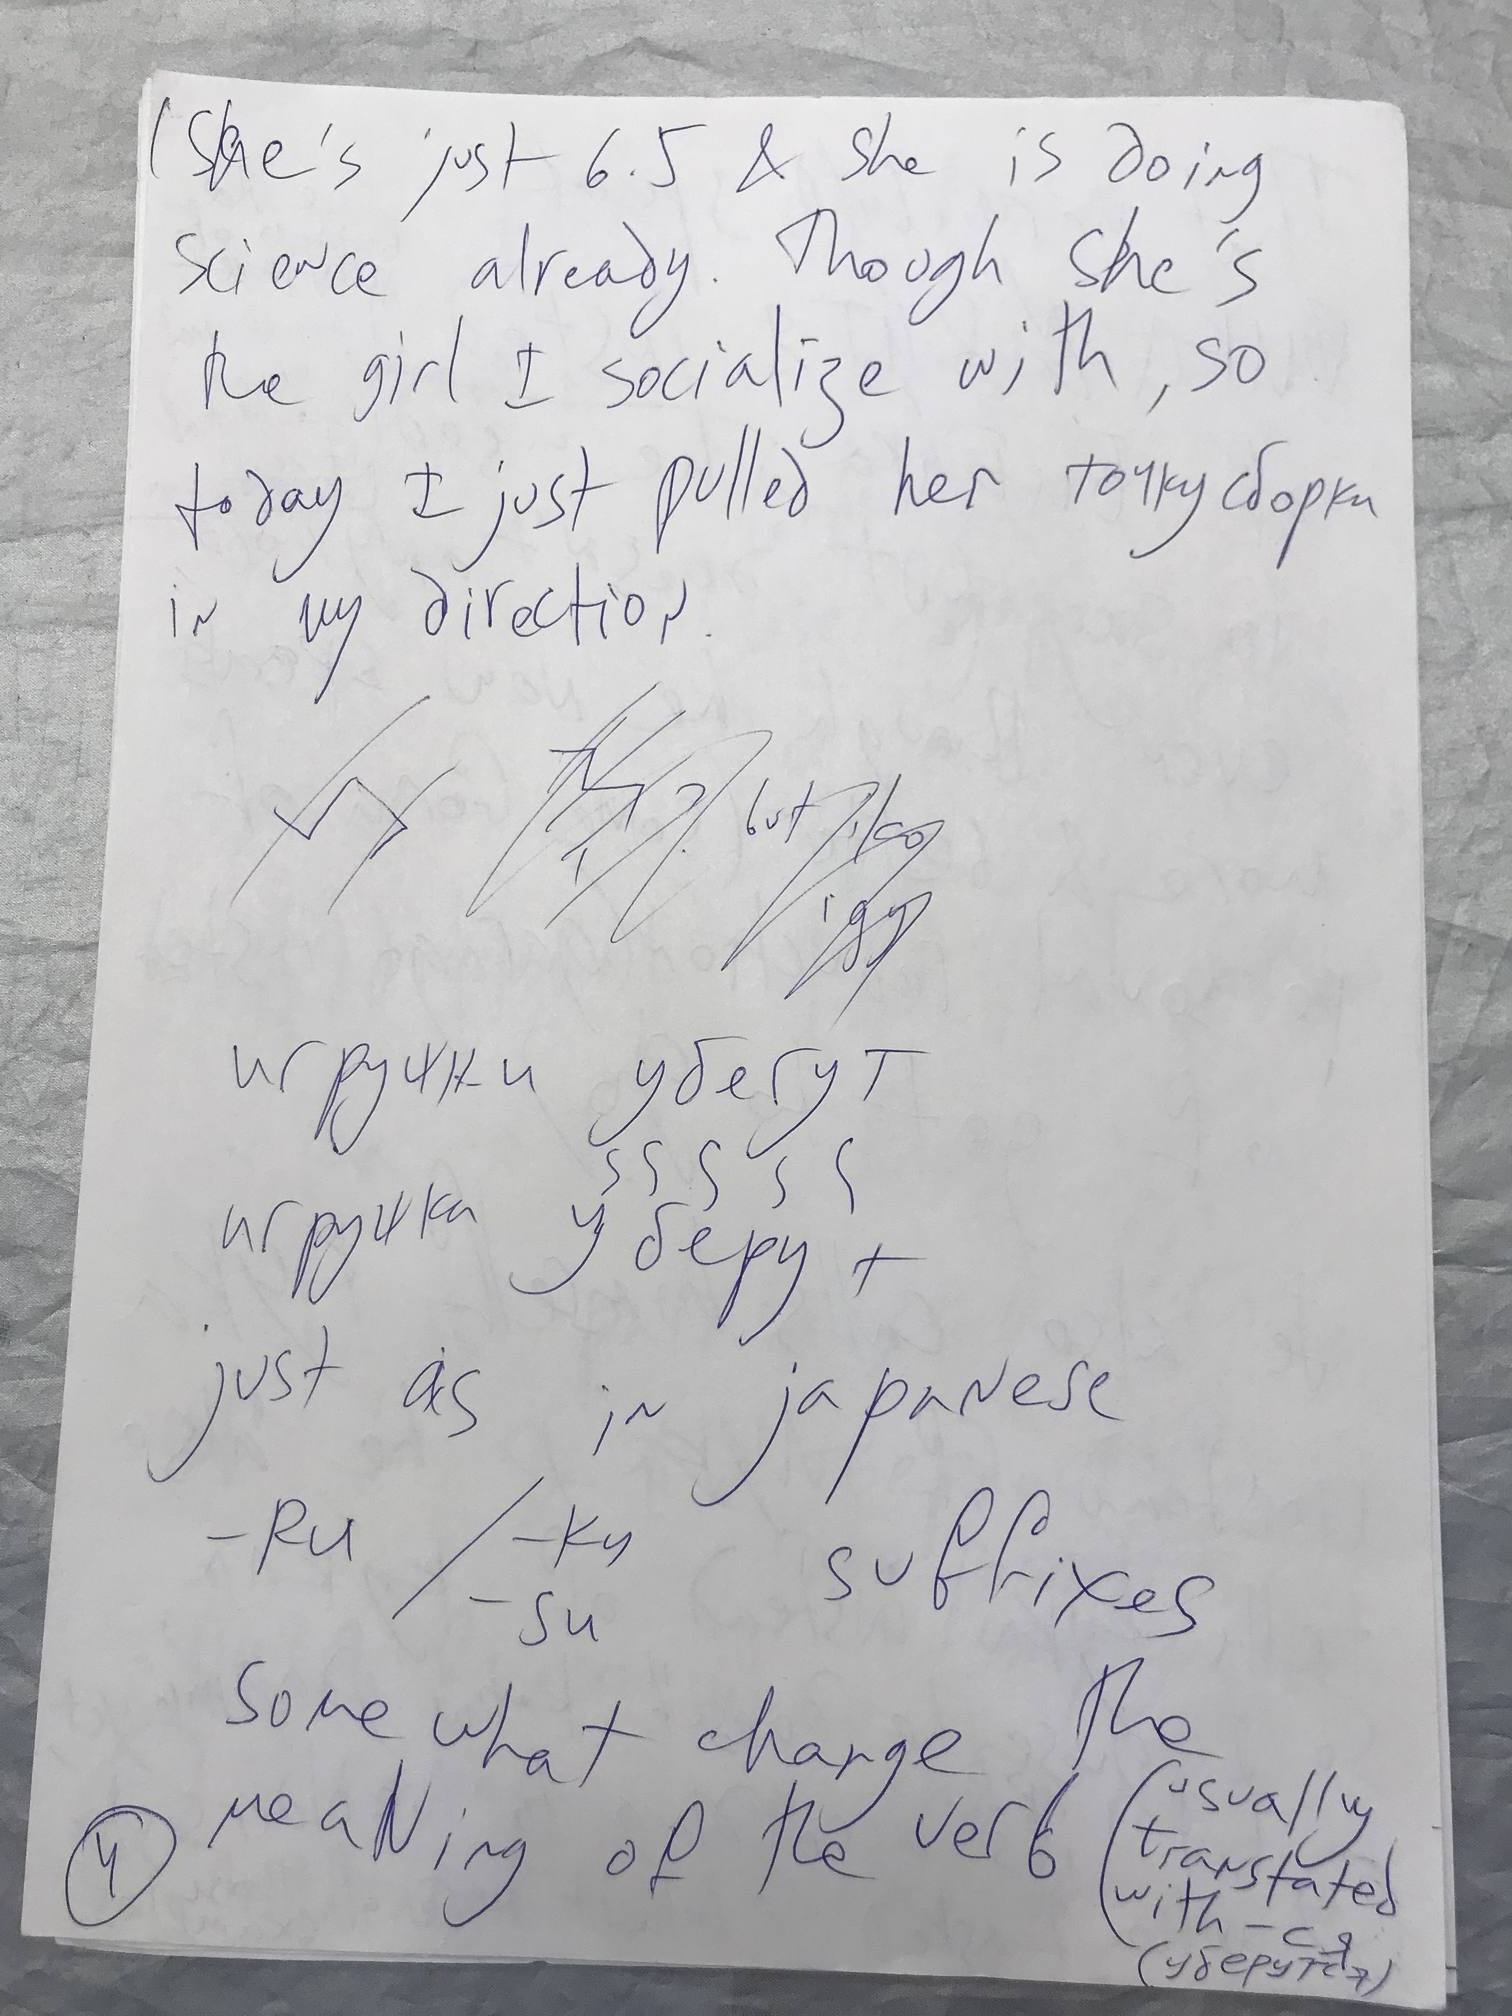 (She's just 6.5 & she is doing
science already. Though she's
the girl I socialize with, so
today I just pulled her точку сборки
in my direction.
but
игружки убегут
игружки уберут
just as in japanese
-Ru / -Ku
-Su
suffixes
somewhat change the
meaning of the verb (usually
translated
with -ся
(уберутся)
4